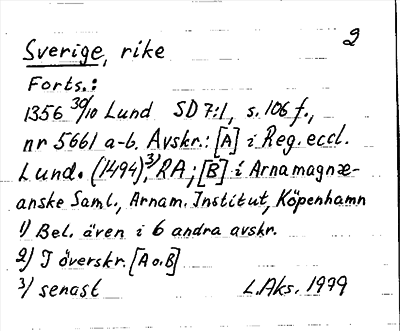 2
Sverige, rike
Forts.:
1356 30/10 Lund SD 7:1, s. 106 f.,
nr 5661 a-b. Avskr.: [A] i Reg. eccl.
Lund. (1494),3) RA; [B] i Arnamagnæ-
anske Saml., Arnam. Institut, Köpenhamn
1) Bel. även i 6 andra avskr.
2) I överskr. [A o. B]
3) senast L.Aks. 1979